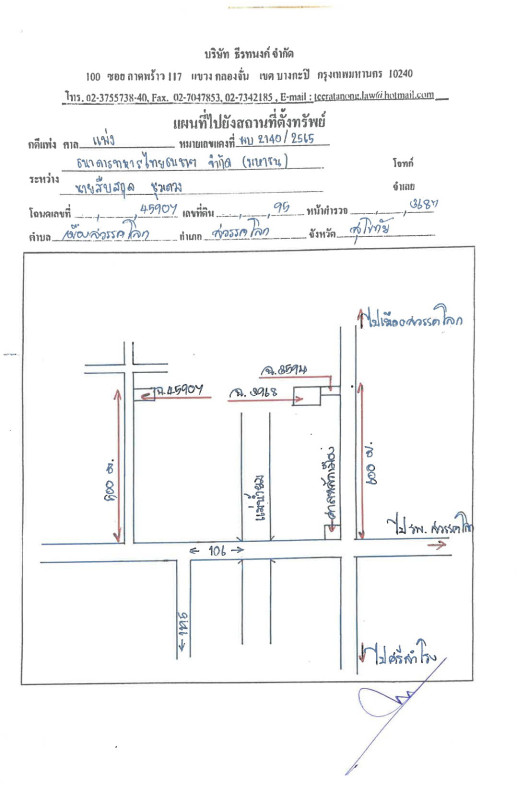 บริษัท ธีรทนงค์ จำกัด
100 ซอย ลาดพร้าว 117 แขวง คลองจั่น เขต บางกะปิ กรุงเทพมหานคร 10240
โทร. 02-3755738-40, Fax. 02-7047853, 02-7342185, E-mail : teeratanong.law@hotmail.com
แผนที่ไปยังสถานที่ตั้งทรัพย์
คดีแพ่ง ศาล แพ่ง หมายเลขแดงที่ ผบ 2140/2565
ธนาคารทหารไทยธนชาต จำกัด (มหาชน) โจทก์
ระหว่าง
นายสืบสกุล จำเลย
โฉนดเลขที่ , , 45907 เลขที่ดิน , , 95 หน้าสำรวจ , ,
ตำบล เมืองสวรรคโลก อำเภอ สวรรคโลก จังหวัด สุโขทัย
ไปเมืองสวรรคโลก
ฉ. 3594
ฉ.45907
ฉ. 3968
600 ม.
แม่น้ำยม
ศาลหลักเมือง
600 ม.
ไป รพ. สวรรคโลก
106
ไปศรีสำโรง